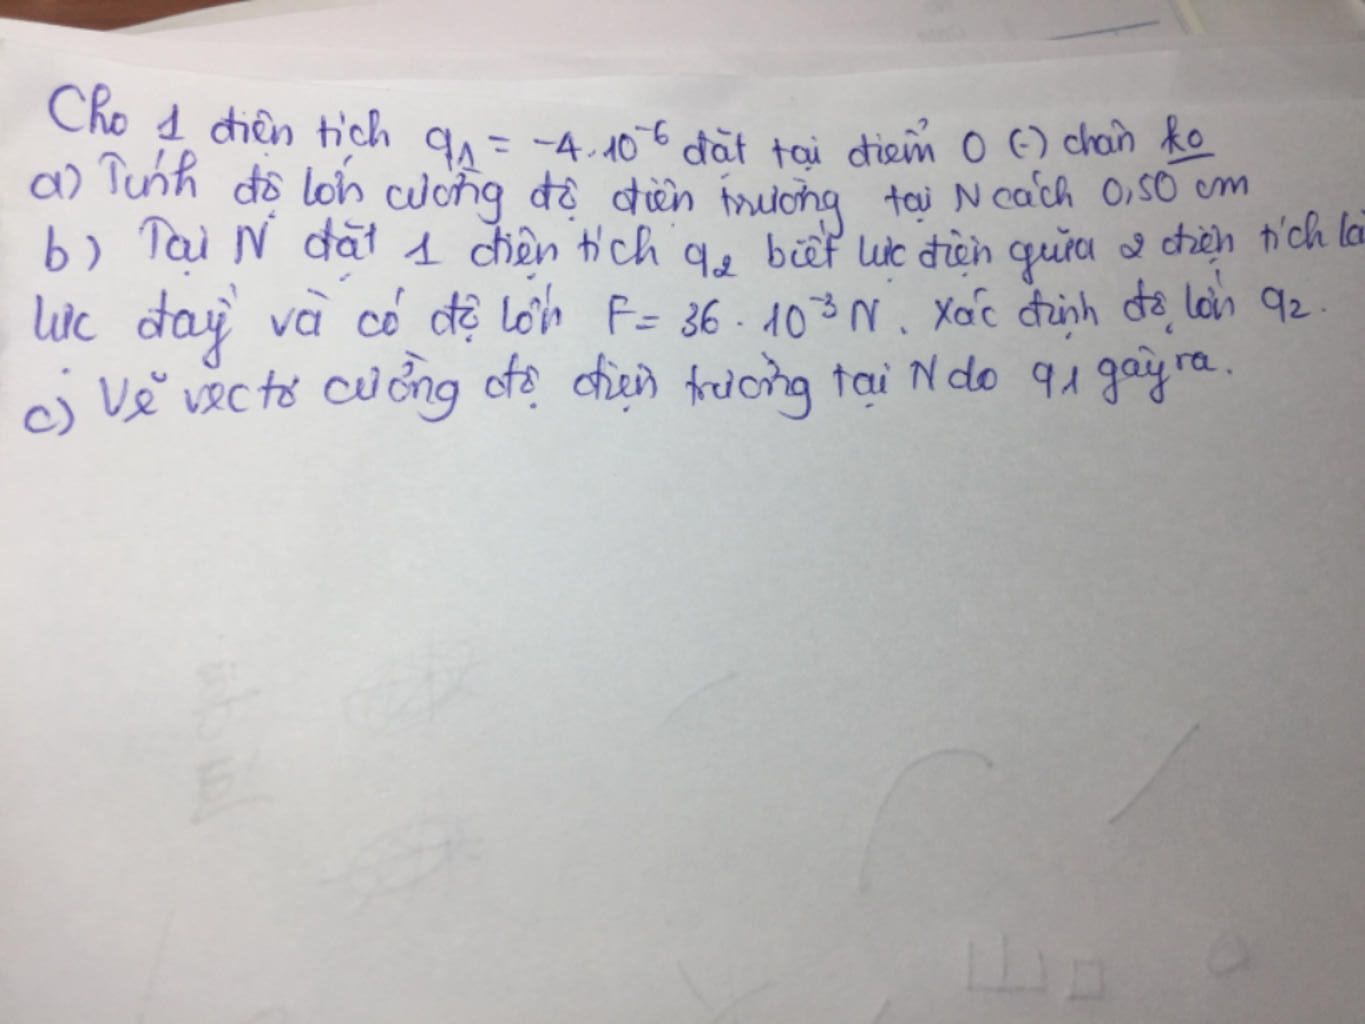 Cho 1 điện tích q1 = -4.10^-6 đặt tại điểm O (-) chân ko
a) Tính độ lớn cường độ điện trường tại N cách O, 50 cm
b) Tại N đặt 1 điện tích q2 biết lực điện giữa 2 điện tích là
lực đẩy và có độ lớn F = 36 . 10^-3 N. Xác định độ lớn q2.
c) Vẽ vectơ cường độ điện trường tại N do q1 gây ra.